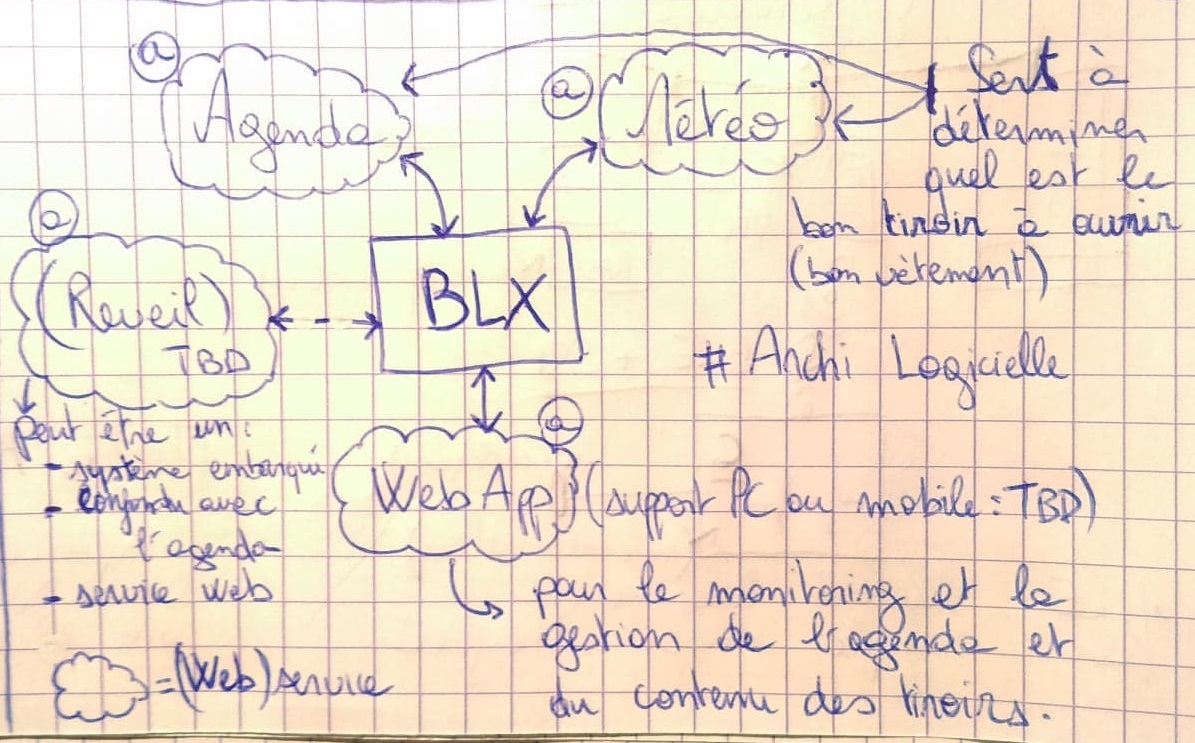 @
Agenda
@
Météo
Sert à
déterminer
quel est le
bon tiroir à ouvrir
(bon vêtement)
@
(Reveil)
TBD
BLX
# Archi Logicielle
peut être un :
- système embarqué
- confondu avec
l'agenda
- service web
@
Web App (support PC ou mobile : TBD)
pour le monitoring et la
gestion de l'agenda et
du contenu des tiroirs.
= (Web) service